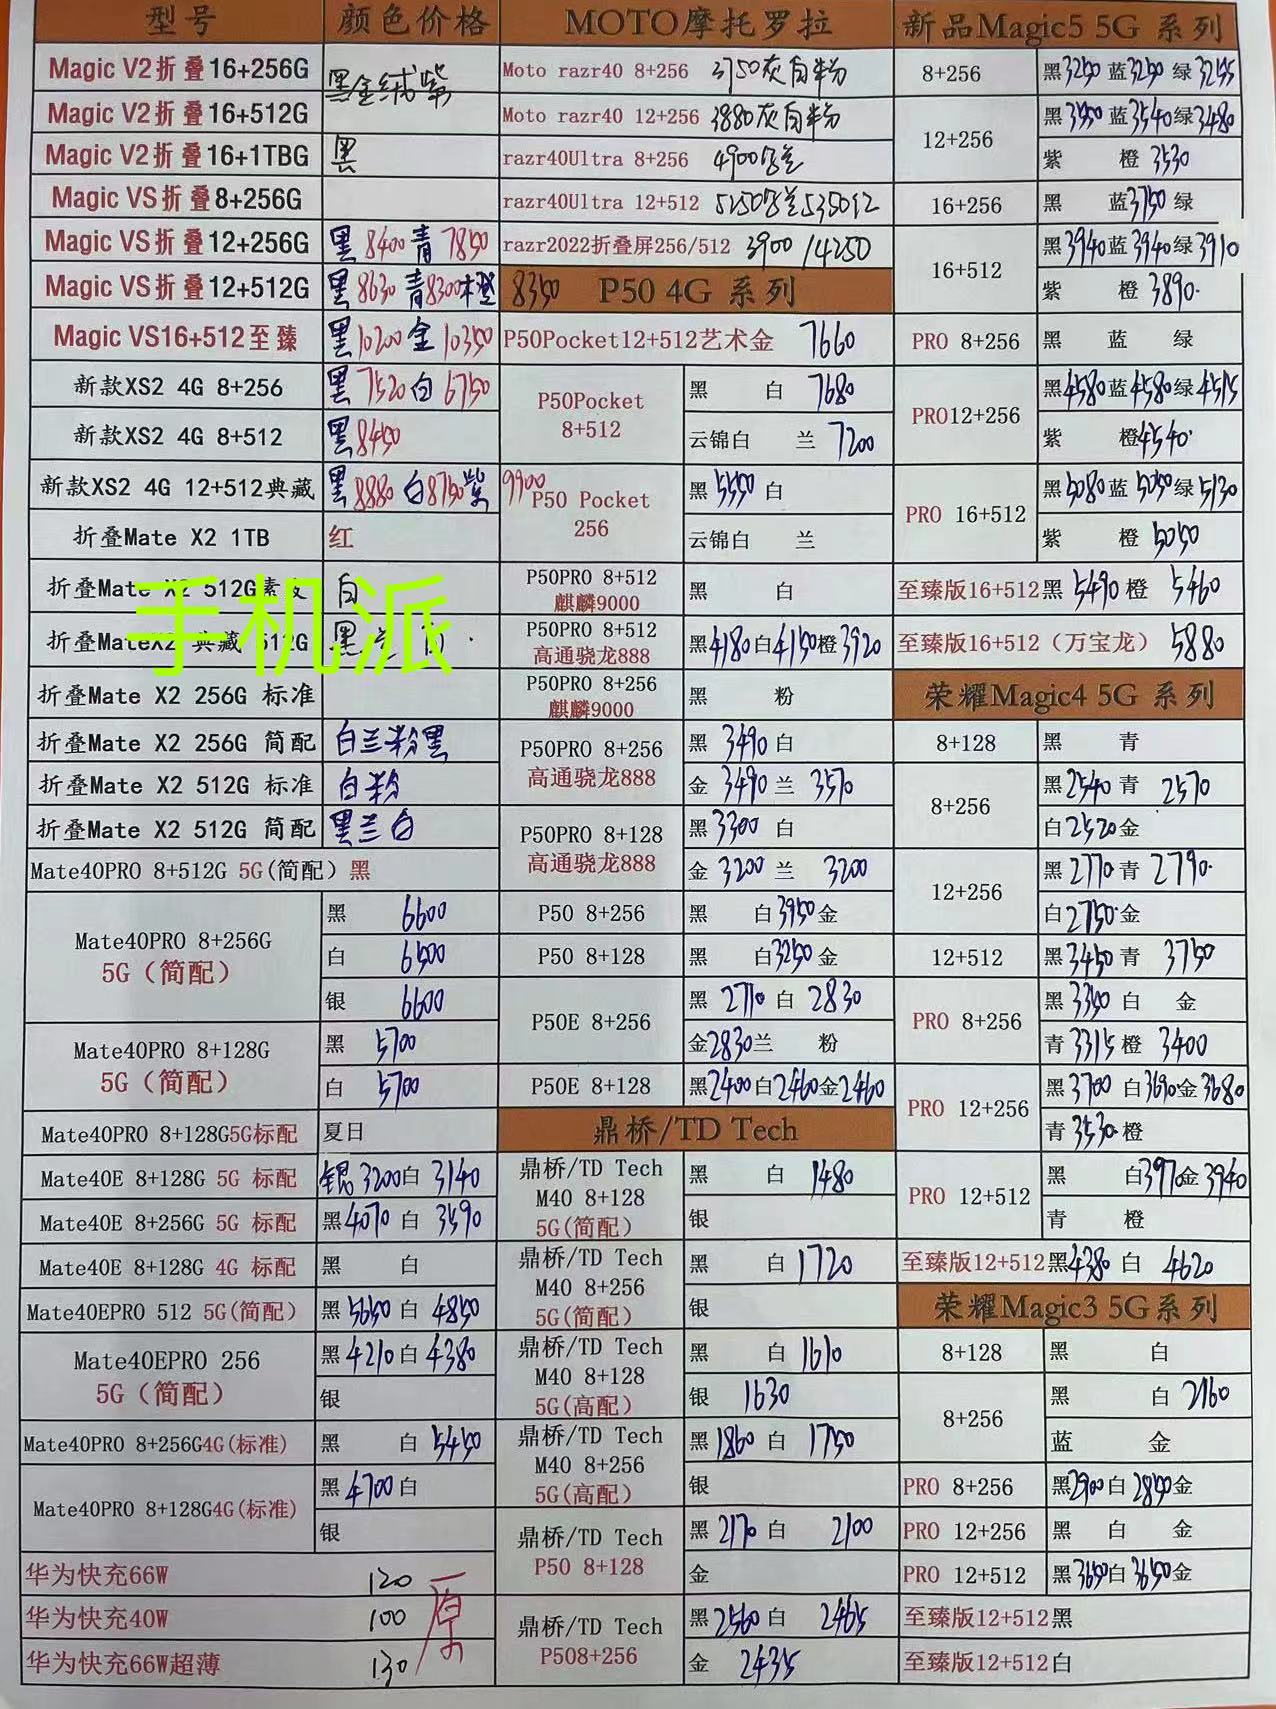 型号 颜色价格 MOTO摩托罗拉 新品Magic5 5G 系列
Magic V2折叠16+256G 黑金绒紫
Magic V2折叠16+512G
Magic V2折叠16+1TBG 黑
Magic VS折叠8+256G
Magic VS折叠12+256G 黑8400青7850
Magic VS折叠12+512G 黑8630青8300橙8350
Magic VS16+512至臻 黑10200金10350
新款XS2 4G 8+256 黑7520白6750
新款XS2 4G 8+512 黑8450
新款XS2 4G 12+512典藏 黑8880白8750紫9900
折叠Mate X2 1TB 红
折叠Mate X2 512G素皮 白
折叠MateX2 典藏 512G 黑
手机派
折叠Mate X2 256G 标准
折叠Mate X2 256G 简配 白兰粉黑
折叠Mate X2 512G 标准 白粉
折叠Mate X2 512G 简配 黑兰白
Mate40PRO 8+512G 5G(简配) 黑
Mate40PRO 8+256G
5G（简配）
黑 6600
白 6500
银 6600
Mate40PRO 8+128G
5G（简配）
黑 5700
白 5700
Mate40PRO 8+128G5G标配 夏日
Mate40E 8+128G 5G 标配 银3200白3140
Mate40E 8+256G 5G 标配 黑4070白3590
Mate40E 8+128G 4G 标配 黑 白
Mate40EPRO 512 5G(简配) 黑5650白4850
Mate40EPRO 256
5G（简配）
黑4210白4380
银
Mate40PRO 8+256G4G(标准) 黑 白5450
Mate40PRO 8+128G4G(标准)
黑4700白
银
华为快充66W 120
华为快充40W 100
华为快充66W超薄 130
原
Moto razr40 8+256 3750灰白粉
Moto razr40 12+256 3880灰白粉
razr40Ultra 8+256 4900
razr40Ultra 12+512 5250 5350红
razr2022折叠屏256/512 3900/4250
P50 4G 系列
P50Pocket12+512艺术金 7660
P50Pocket
8+512
黑 白 7680
云锦白 兰 7200
P50 Pocket
256
黑5550白
云锦白 兰
P50PRO 8+512
麒麟9000
黑 白
P50PRO 8+512
高通骁龙888
黑4180白4150橙3920
P50PRO 8+256
麒麟9000
黑 粉
P50PRO 8+256
高通骁龙888
黑 3490 白
金 3490 兰 3570
P50PRO 8+128
高通骁龙888
黑3300 白
金 3200 兰 3200
P50 8+256 黑 白3950金
P50 8+128 黑 白3250金
P50E 8+256
黑 2710 白 2830
金2830兰 粉
P50E 8+128 黑2400白2460金2460
鼎桥/TD Tech
鼎桥/TD Tech
M40 8+128
5G(简配)
黑 白 1480
银
鼎桥/TD Tech
M40 8+256
5G(简配)
黑 白1720
银
鼎桥/TD Tech
M40 8+128
5G(高配)
黑 白1610
银 1630
鼎桥/TD Tech
M40 8+256
5G(高配)
黑1860白 1750
银
鼎桥/TD Tech
P50 8+128
黑2170白 2100
金
鼎桥/TD Tech
P508+256
黑2560白 2465
金 2435
8+256 黑3250蓝3250绿3255
12+256
黑3550蓝3540绿3480
紫 橙3530
16+256 黑 蓝3750绿
16+512
黑3940蓝3940绿3910
紫 橙3890
PRO 8+256 黑 蓝 绿
PRO12+256
黑4580蓝4580绿4515
紫 橙4540
PRO 16+512
黑5080蓝5050绿5130
紫 橙5050
至臻版16+512黑5490橙 5460
至臻版16+512（万宝龙）5880
荣耀Magic4 5G 系列
8+128 黑 青
8+256
黑2540青 2570
白2520金
12+256
黑2770青 2790
白2750金
12+512 黑3450青 3750
PRO 8+256
黑3350白 金
青3315橙 3400
PRO 12+256
黑3700白3690金3680
青3530橙
PRO 12+512
黑 白3970金3940
青 橙
至臻版12+512黑4380白 4620
荣耀Magic3 5G系列
8+128 黑 白
8+256
黑 白2160
蓝 金
PRO 8+256 黑2900白2850金
PRO 12+256 黑 白 金
PRO 12+512 黑3650白3650金
至臻版12+512黑
至臻版12+512白